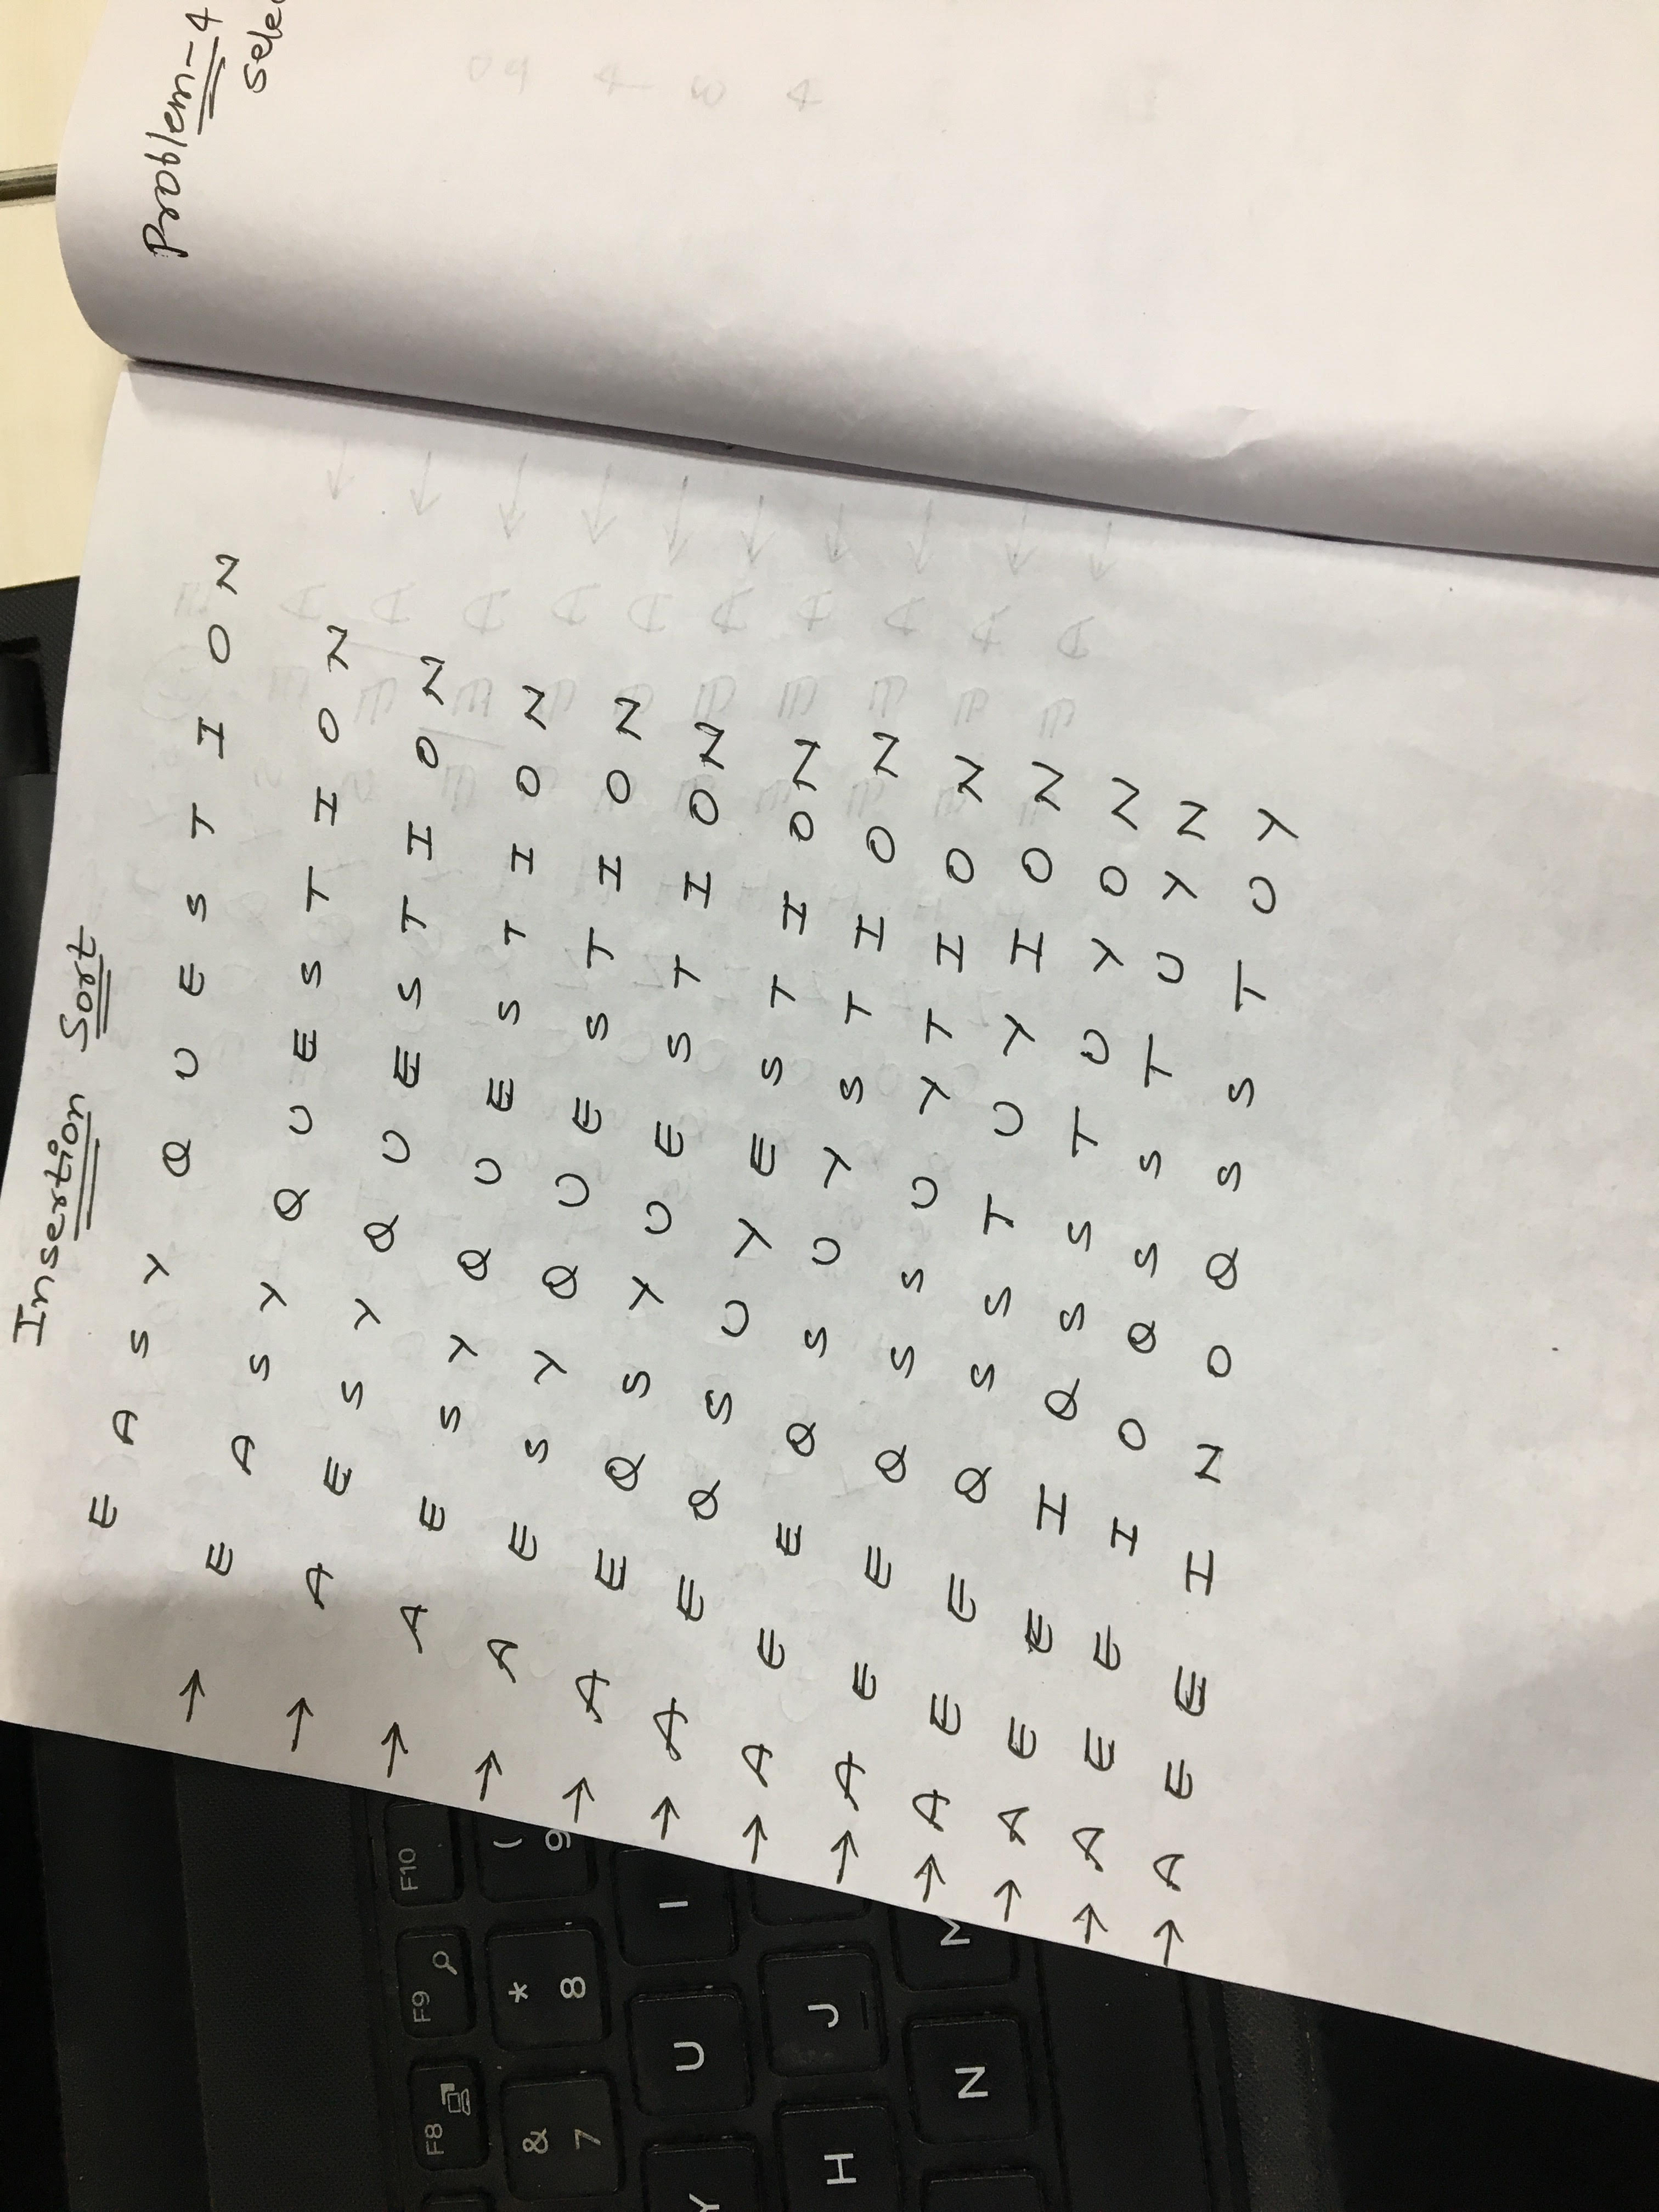 Insertion Sort
E A S Y Q U E S T I O N
→ E A S Y Q U E S T I O N
→ A E S Y Q U E S T I O N
→ A E S Y Q U E S T I O N
→ A E S Y Q U E S T I O N
→ A E Q S Y U E S T I O N
→ A E Q S U Y E S T I O N
→ A E E Q S U Y S T I O N
→ A E E Q S S U Y T I O N
→ A E E Q S S T U Y I O N
→ A E E I Q S S T U Y O N
→ A E E I O Q S S T U Y N
→ A E E I N O Q S S T U Y
Problem-4
F8 F9 F10
& * (
7 8 9
Y U I
H J
N M